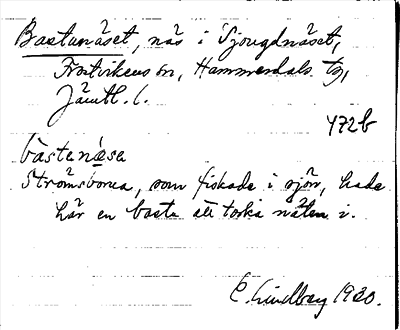 Bastunäset, näs i Sjougdnäset,
Frostvikens sn, Hammerdals tg,
Jämtl. l.
472b
bàstenä́sa
Strömsborna, som fiskade i sjön, hade
här en bastu att torka näten i.
C. Lindberg 1930.